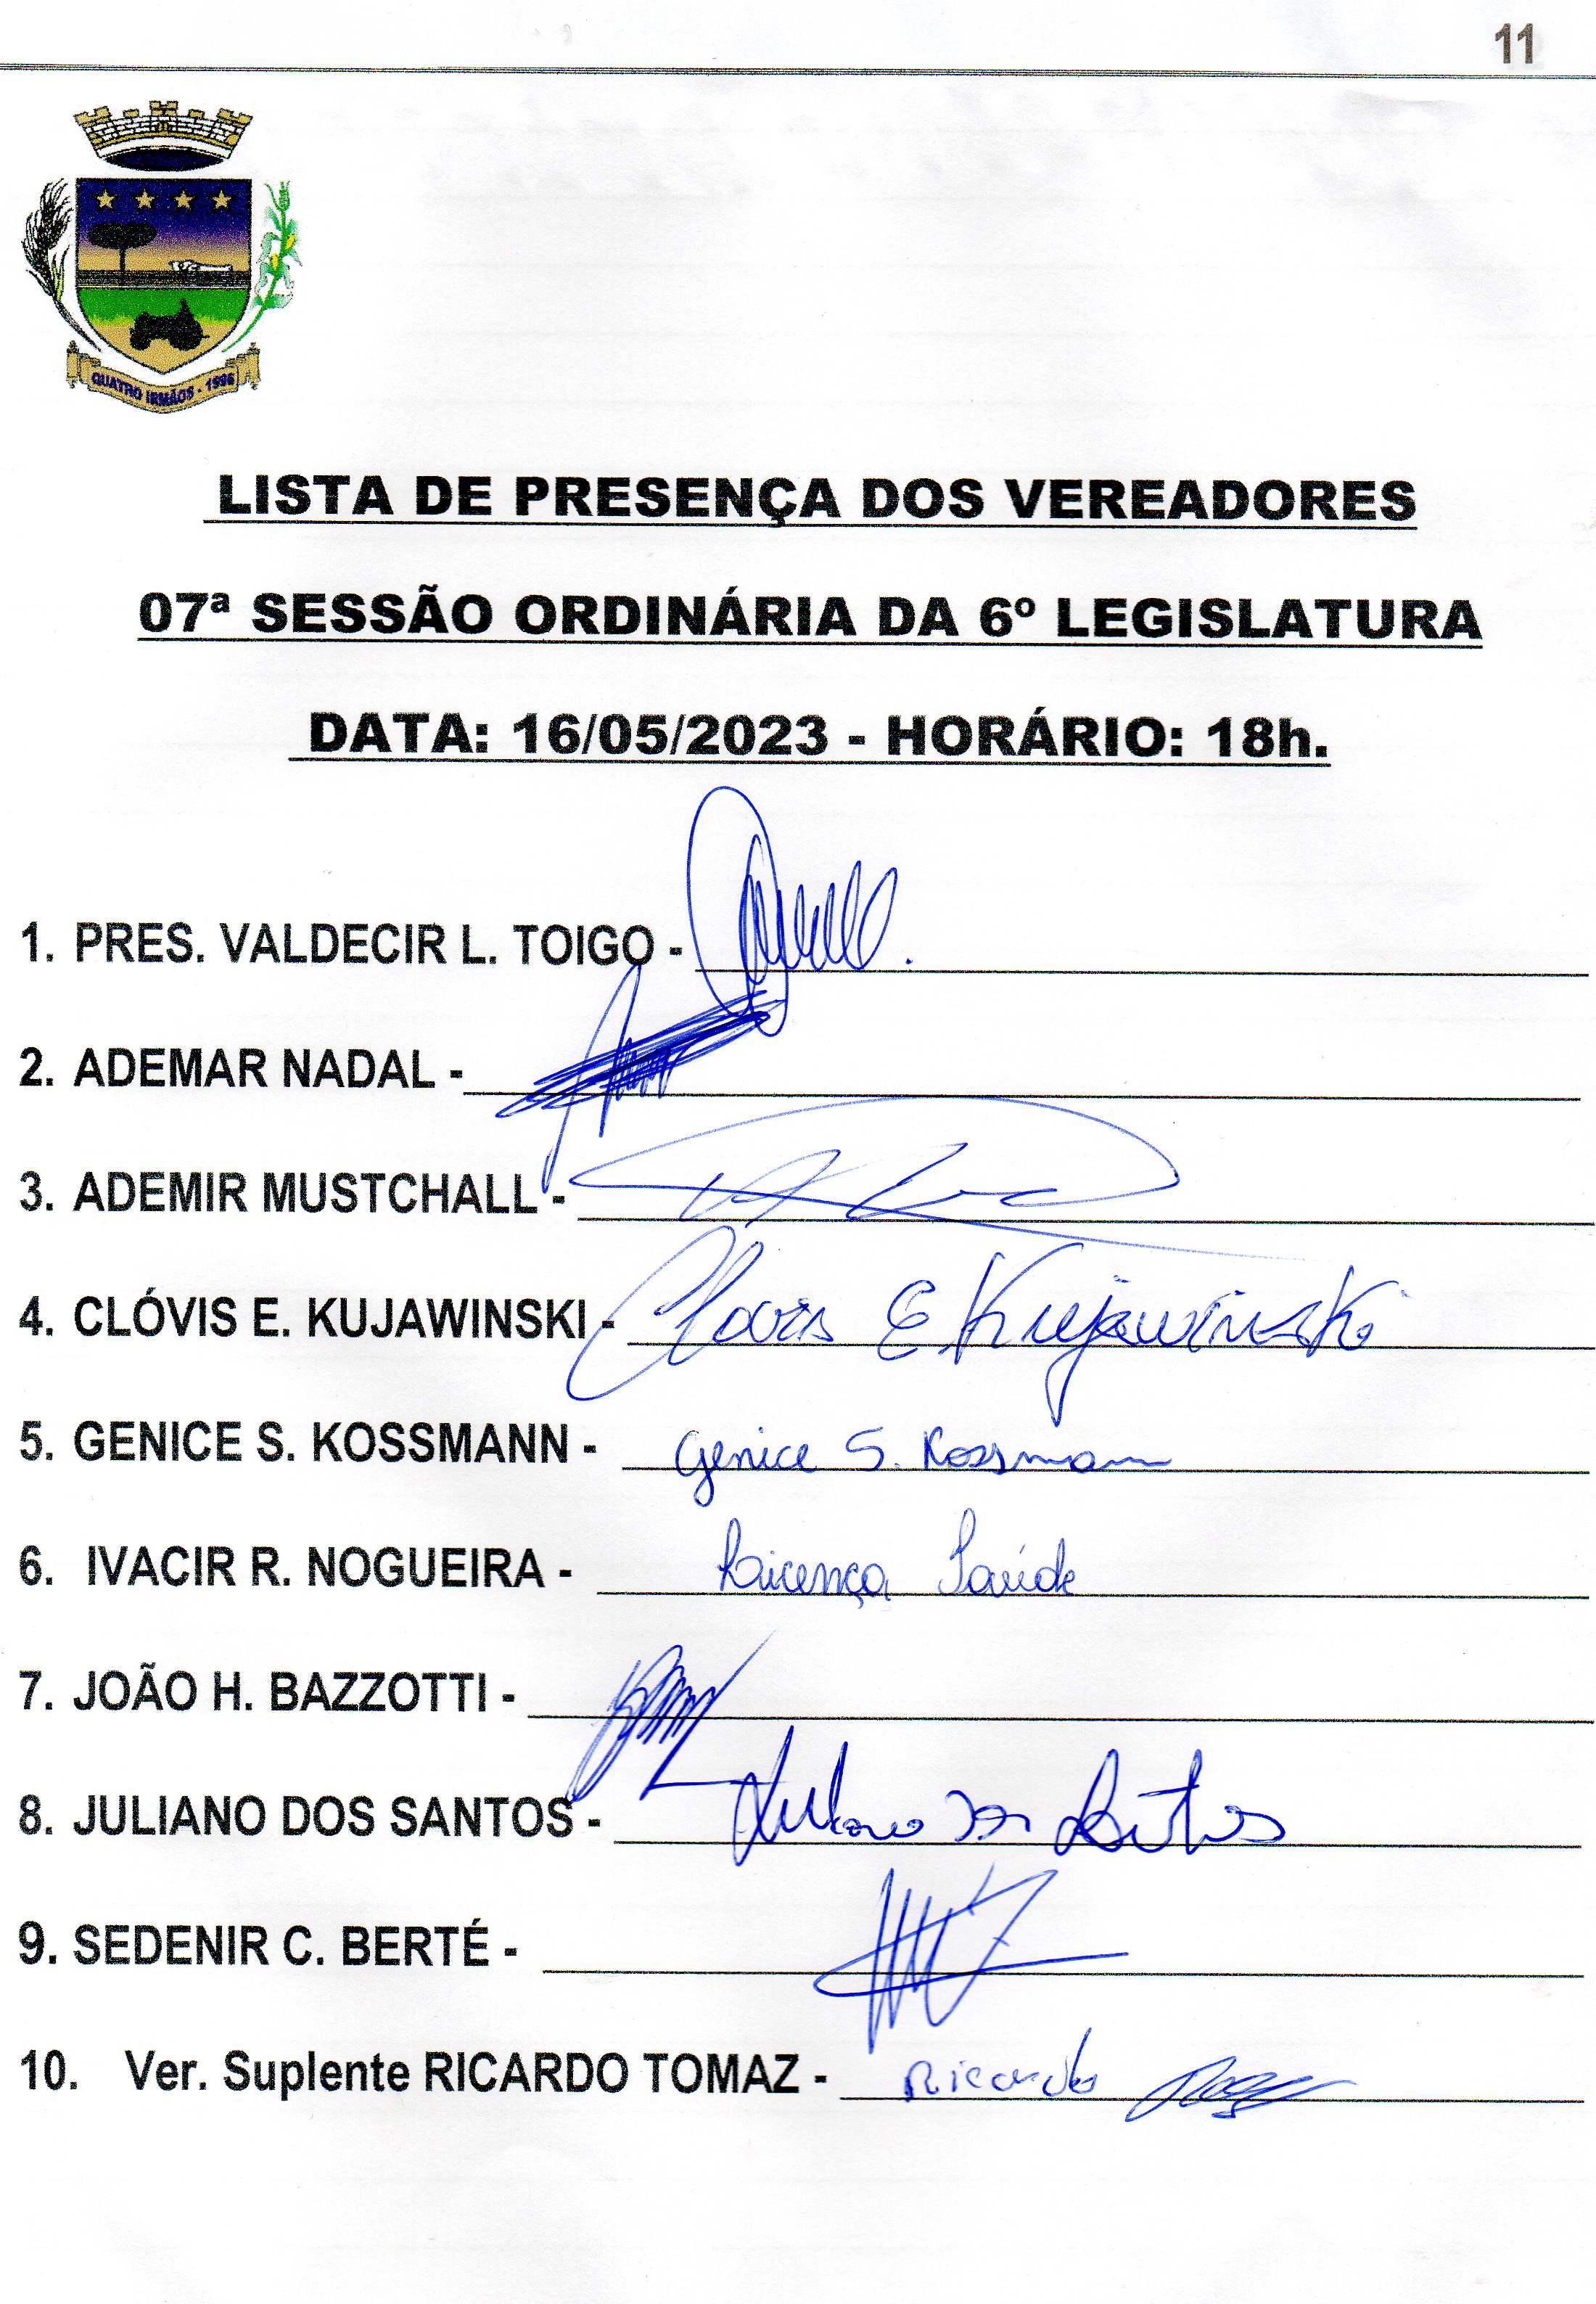 11
QUATRO IRMÃOS - 1996
LISTA DE PRESENÇA DOS VEREADORES
07ª SESSÃO ORDINÁRIA DA 6º LEGISLATURA
DATA: 16/05/2023 - HORÁRIO: 18h.
1. PRES. VALDECIR L. TOIGO -
2. ADEMAR NADAL -
3. ADEMIR MUSTCHALL -
4. CLÓVIS E. KUJAWINSKI - Clovis E Kujawinski
5. GENICE S. KOSSMANN - Genice S. Kossmann
6. IVACIR R. NOGUEIRA - Licença Saúde
7. JOÃO H. BAZZOTTI -
8. JULIANO DOS SANTOS - Juliano dos Santos
9. SEDENIR C. BERTÉ -
10. Ver. Suplente RICARDO TOMAZ - Ricardo